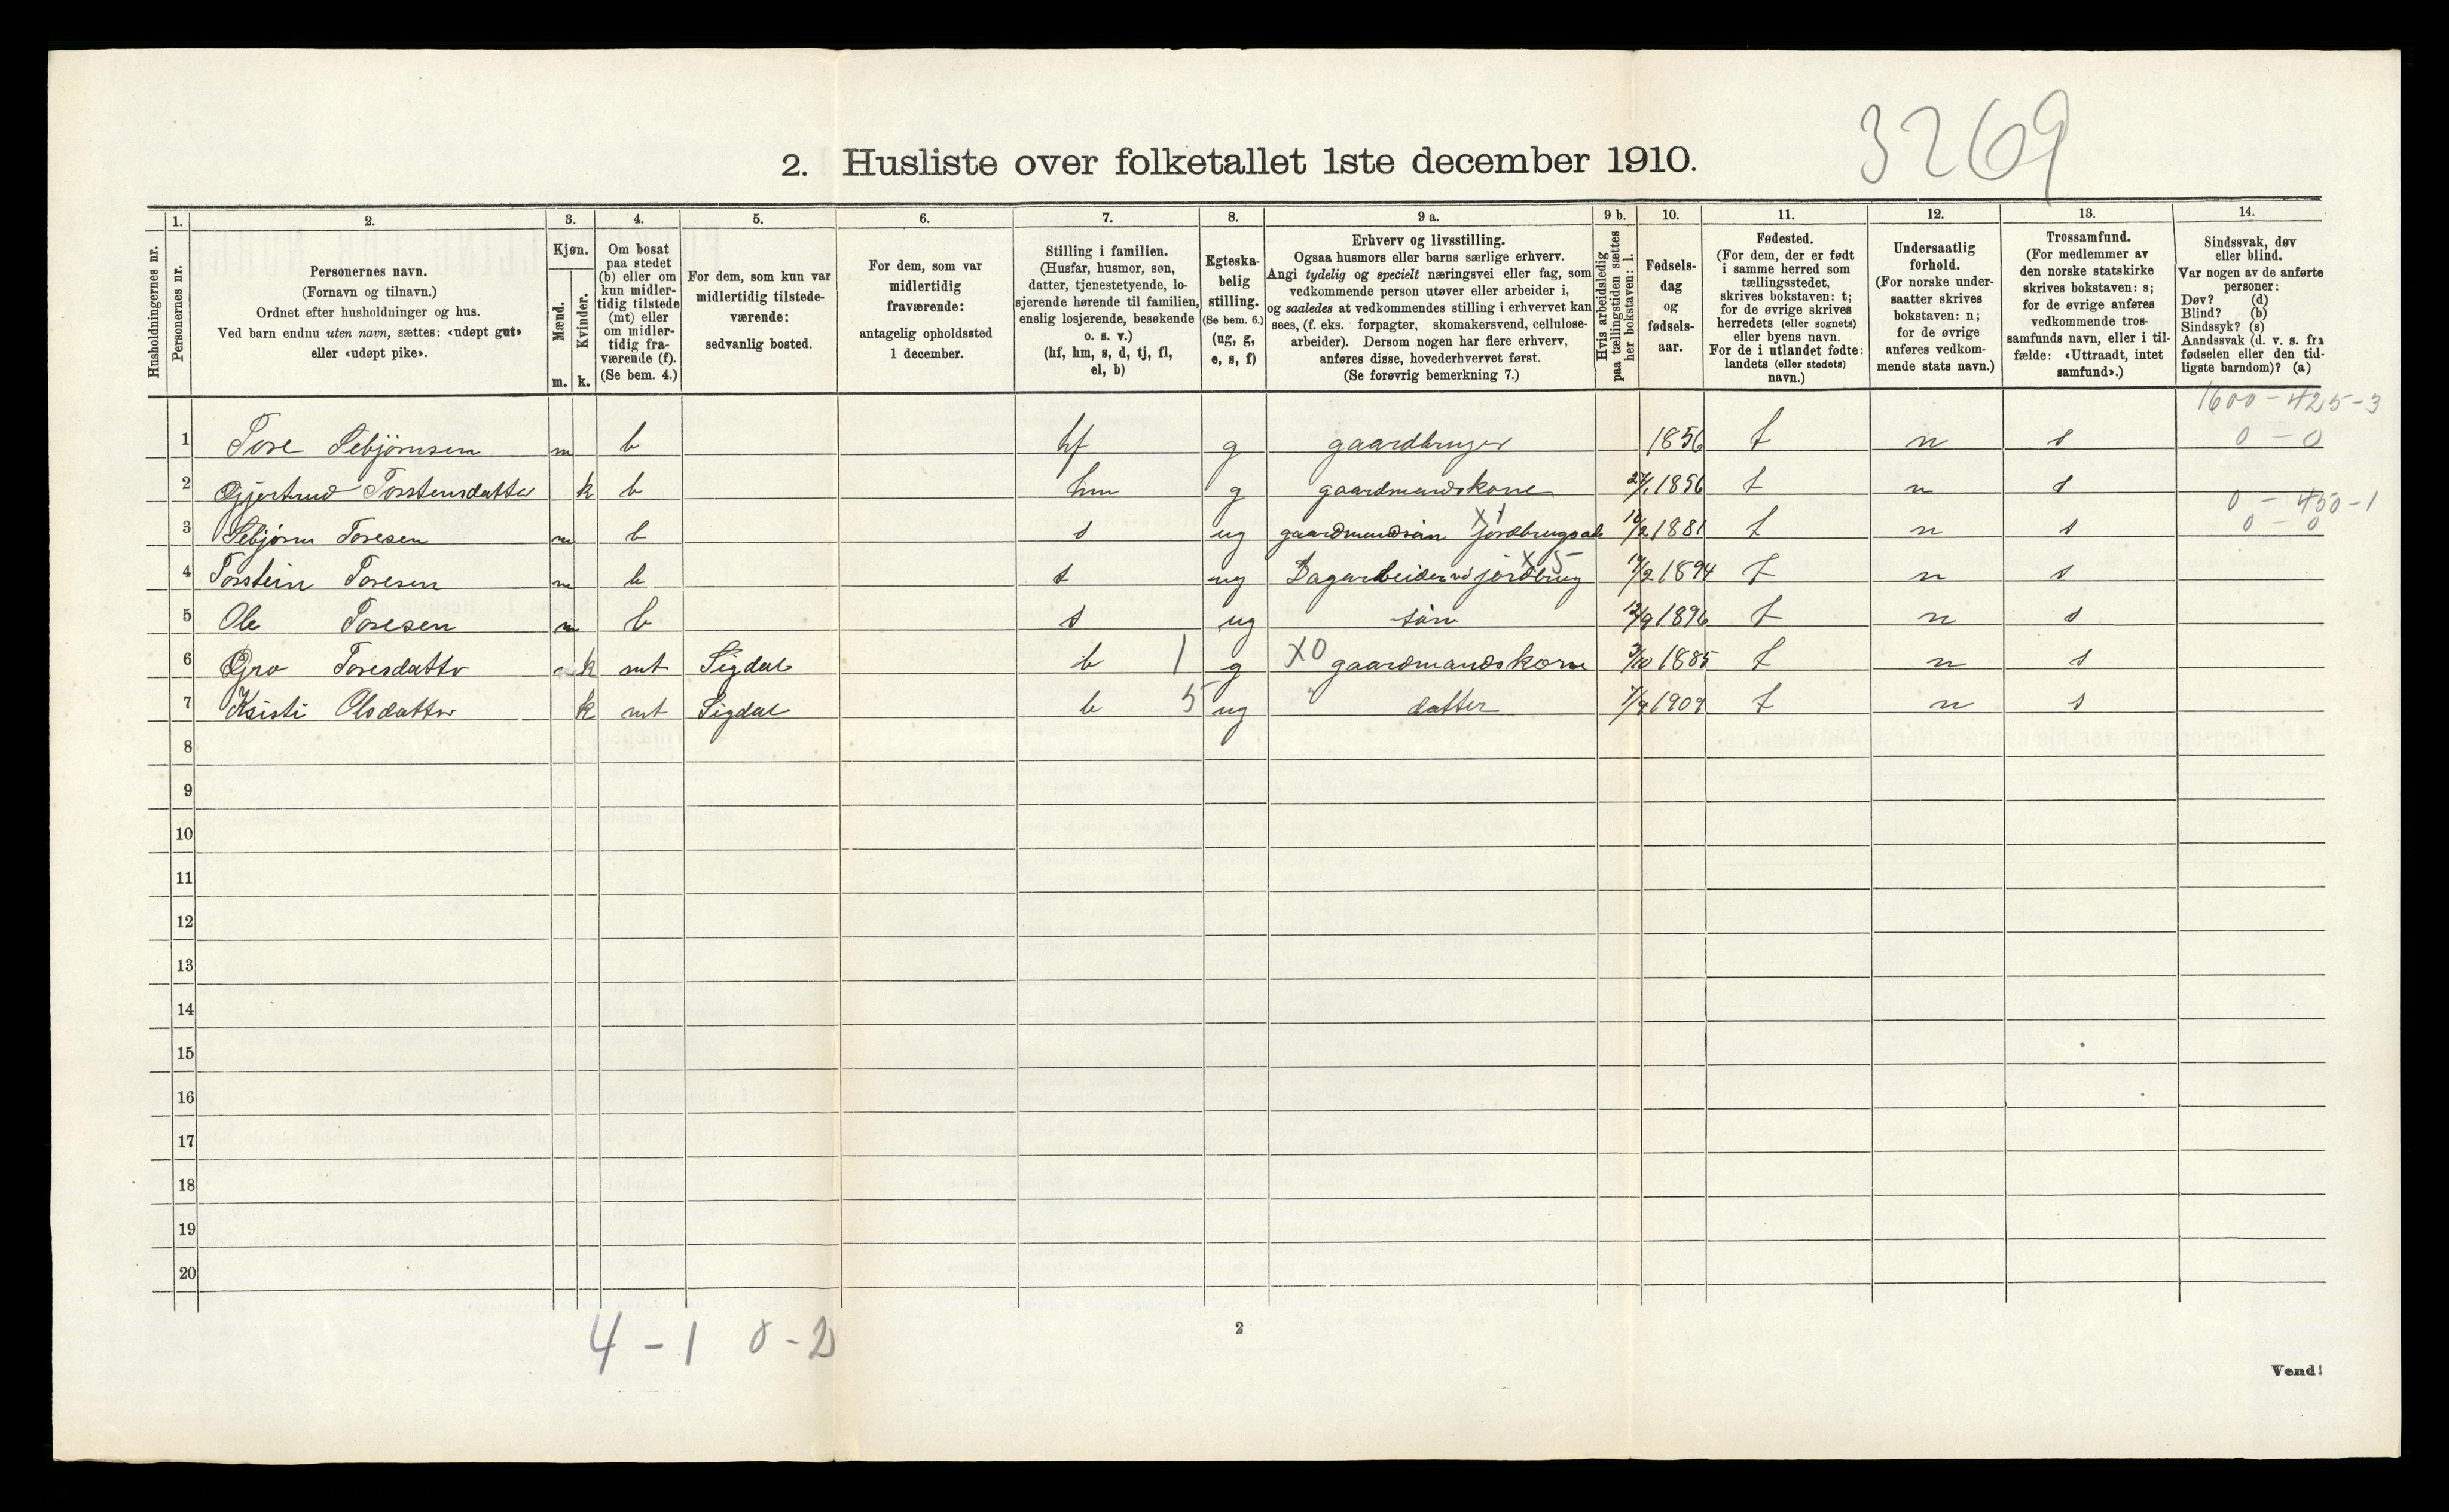 3269
2. Husliste over folketallet 1ste december 1910.
1. 2. 3. 4. 5. 6. 7. 8. 9 a. 9 b. 10. 11. 12. 13. 14.
Husholdningernes nr.
Personernes nr.
Personernes navn.
(Fornavn og tilnavn.)
Ordnet efter husholdninger og hus.
Ved barn endnu uten navn, sættes: «udøpt gut»
eller «udøpt pike».
Kjøn.
Mænd.
Kvinder.
m. k.
Om bosat
paa stedet
(b) eller om
kun midler-
tidig tilstede
(mt) eller
om midler-
tidig fra-
værende (f).
(Se bem. 4.)
For dem, som kun var
midlertidig tilstede-
værende:
sedvanlig bosted.
For dem, som var
midlertidig
fraværende:
antagelig opholdssted
1 december.
Stilling i familien.
(Husfar, husmor, søn,
datter, tjenestetyende, lo-
sjerende hørende til familien,
enslig losjerende, besøkende
o. s. v.)
(hf, hm, s, d, tj, fl,
el, b)
Egteska-
belig
stilling.
(Se bem. 6.)
(ug, g,
e, s, f)
Erhverv og livsstilling.
Ogsaa husmors eller barns særlige erhverv.
Angi tydelig og specielt næringsvei eller fag, som
vedkommende person utøver eller arbeider i,
og saaledes at vedkommendes stilling i erhvervet kan
sees, (f. eks. forpagter, skomakersvend, cellulose-
arbeider). Dersom nogen har flere erhverv,
anføres disse, hovederhvervet først.
(Se forøvrig bemerkning 7.)
Hvis arbeidsledig
paa tællingstiden sættes
her bokstaven: l.
Fødsels-
dag
og
fødsels-
aar.
Fødested.
(For dem, der er født
i samme herred som
tællingsstedet,
skrives bokstaven: t;
for de øvrige skrives
herredets (eller sognets)
eller byens navn.
For de i utlandet fødte:
landets (eller stedets)
navn.)
Undersaatlig
forhold.
(For norske under-
saatter skrives
bokstaven: n;
for de øvrige
anføres vedkom-
mende stats navn.)
Trossamfund.
(For medlemmer av
den norske statskirke
skrives bokstaven: s;
for de øvrige anføres
vedkommende tros-
samfunds navn, eller i til-
fælde: «Uttraadt, intet
samfund».)
Sindssvak, døv
eller blind.
Var nogen av de anførte
personer:
Døv? (d)
Blind? (b)
Sindssyk? (s)
Aandssvak (d. v. s. fra
fødselen eller den tid-
ligste barndom)? (a)
1600 - 425 - 3
1 Tore Sebjørnsen m b hf g gaardbruger 1856 t n s 0 - 0
2 Gjertrud Torstensdatter k b hm g gaardmandskone 27/1 1856 t n s
0 - 450 - 1
3 Sebjørn Toresen m b s ug gaardmandsøn jordbrugsab 10/2 1881 t n s 0 - 0
4 Torstein Toresen m b s ug Dagarbeider vd jordbrug X 5 1894 t n s
5 Ole Toresen m b s ug søn 12/9 1896 t n s
6 Gro Toresdatter k mt Sigdal b 1 g X0 gaardmandskone 3/10 1885 t n s
7 Kristi Olsdatter k mt Sigdal b 5 ug " datter 1909 t n s
8
9
10
11
12
13
14
15
16
17
18
19
20
4 - 1 0 - 2
2
Vend!